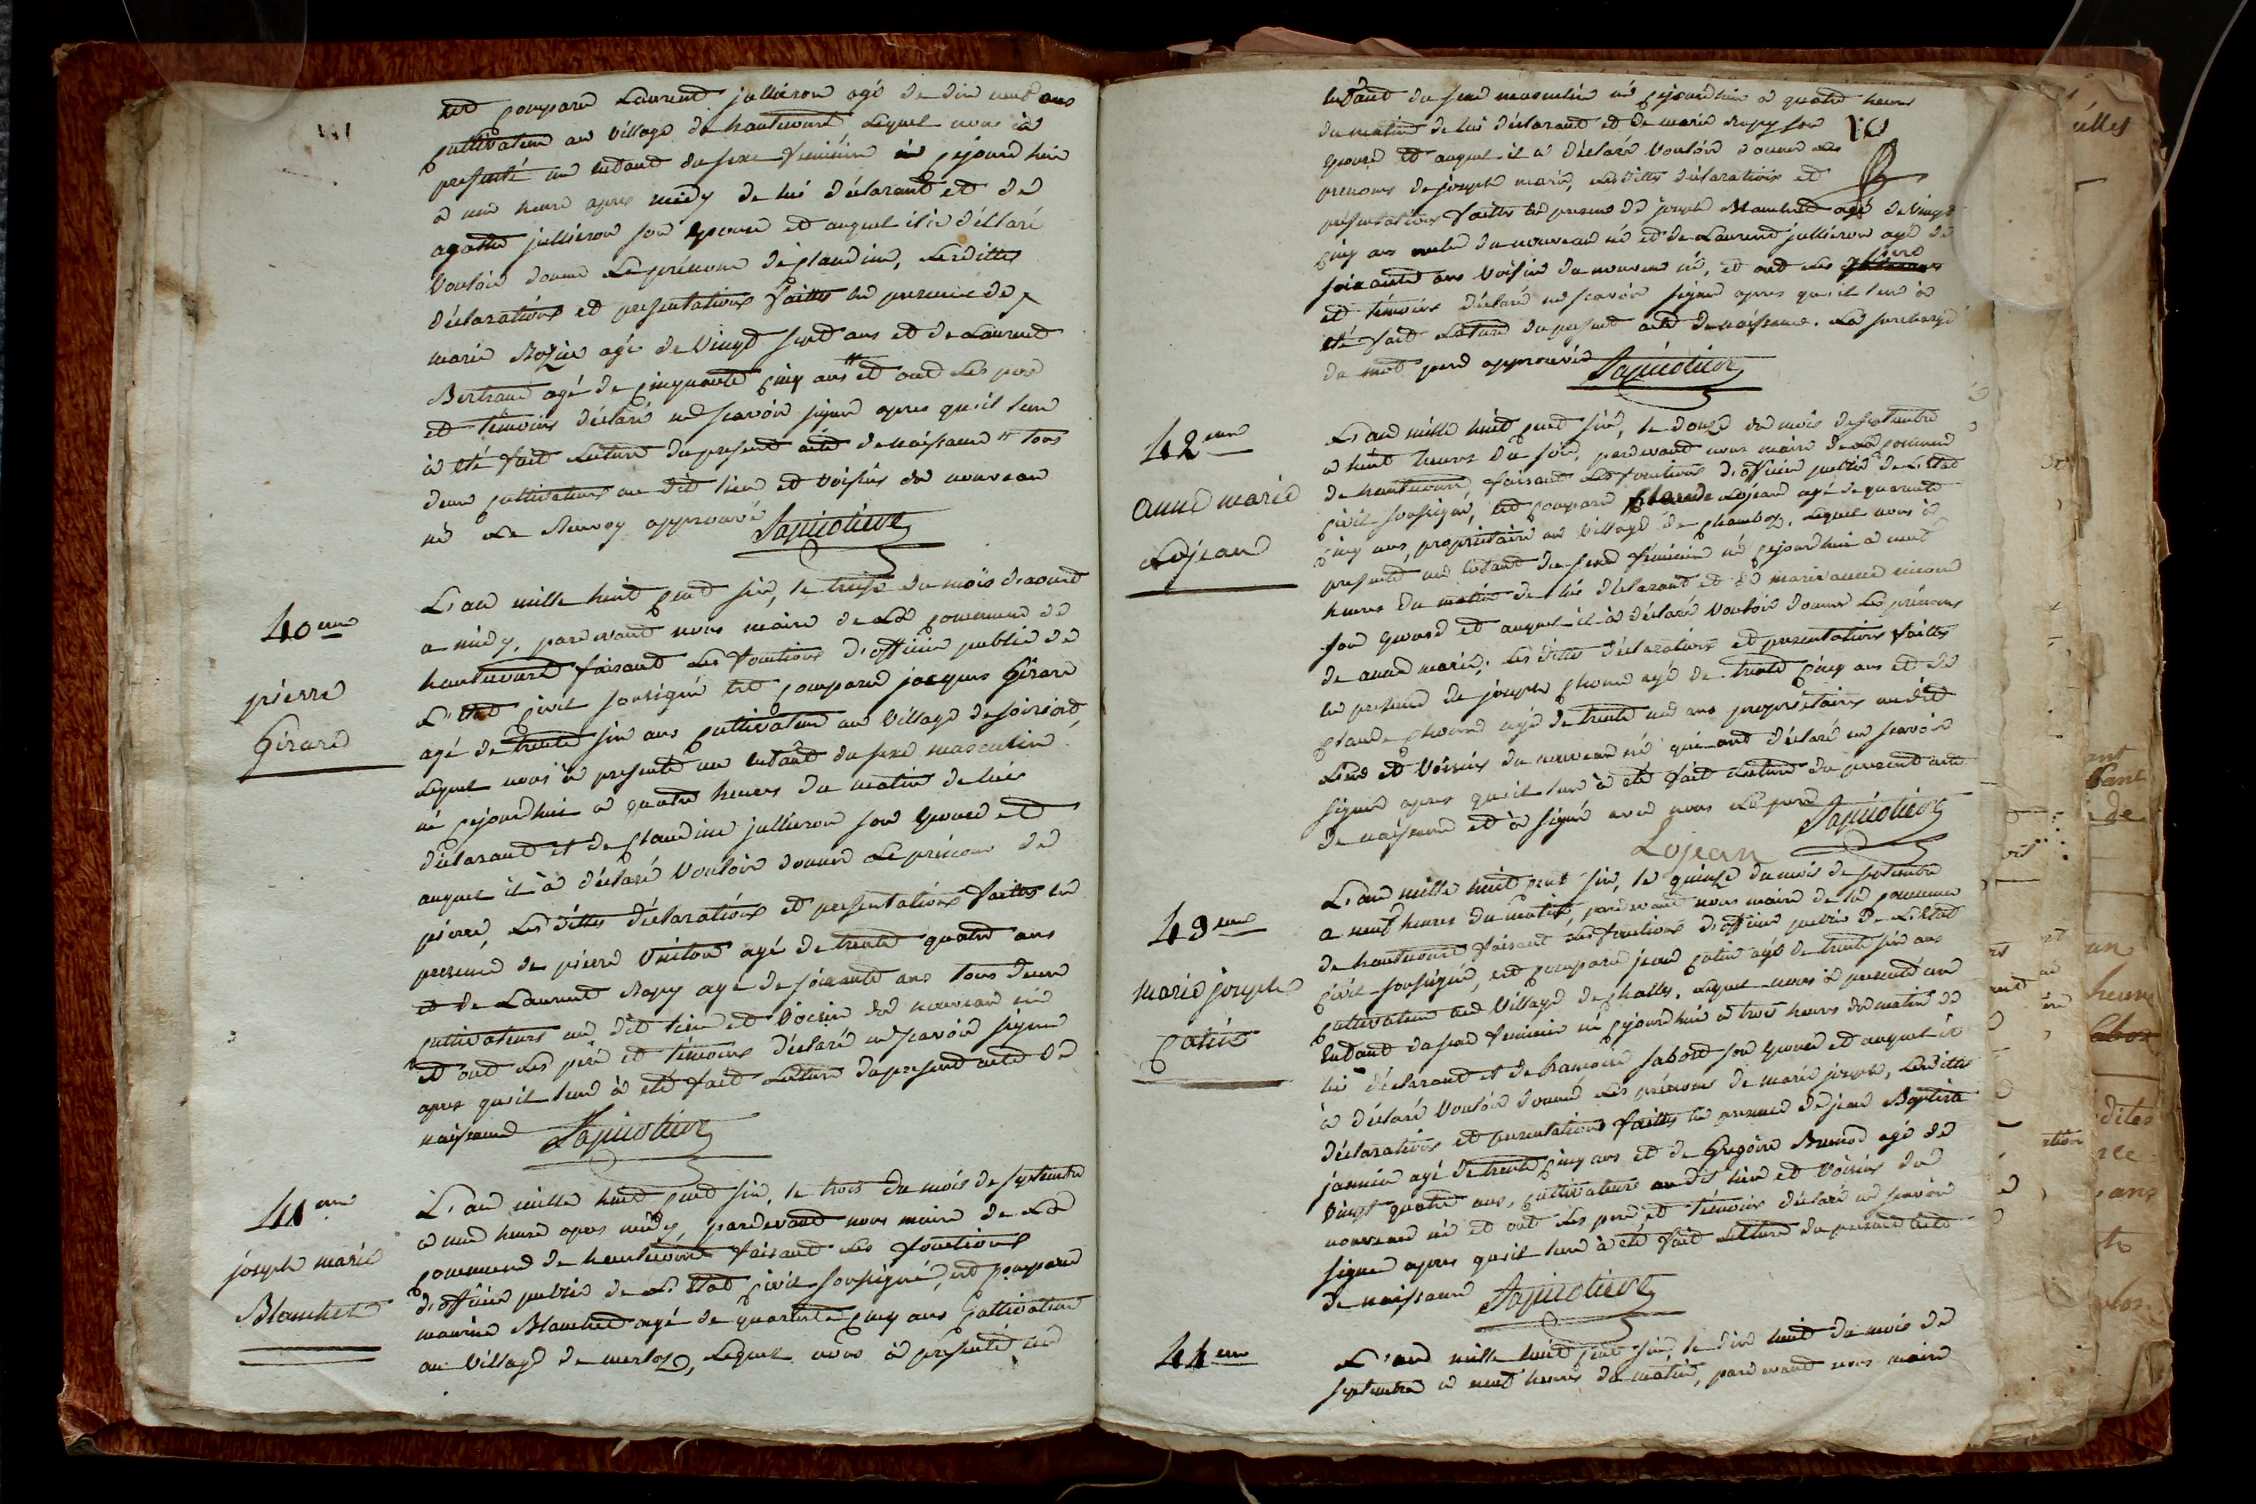 est comparu Laurent jullieron agé de dix neuf ans
cultivateur au village de hautecourt, lequel nous à
presenté un enfant du sexe feminin né cejourd'hui
à une heure apres midy de lui déclarant et de
agathe jullieron son epouse et auquel il à déclaré
vouloir donner le prénom de claudine, lesdittes
déclarations et presentations faittes en presence de
marie Rozier agé de vingt sept ans et de Laurent
Bertrand agé de cinquante cinq ans # et ont les pere
et témoins déclaré ne scavoir signer apres qu'il leur
à eté fait lecture du present acte de naissance # tous
deux cultivateurs au dit lieu et voisins du nouveau
né Le Renvoy approuvé
40eme
pierre
Girard
L'an mille huit cent six, le treize du mois d'aoust
a midy, pardevant nous maire de la commune de
hautecourt faisant les fonctions d'officier public de
L'etat civil soussigné est comparu jacques Girard
agé de trente six ans cultivateur au village de
lequel nous à presenté un enfant du sexe masculin
né cejourdhui à quatre heures du matin de lui
déclarant et de claudine jullieron son epouse et
auquel il à déclaré vouloir donner le prénom de
pierre, les dittes déclarations et presentations faites en
presence de pierre agé de trente quatre ans
et de Laurent Ropy agé de soixante ans tous deux
cultivateurs au dit lieu et voisin du nouveau né
et ont les pere et témoins déclaré ne scavoir signer
apres qu'il leur à eté fait lecture du present acte de
naissance
41eme
joseph marie
Blanchet
L'an mille huit cent six, le trois du mois de septembre
à une heure apres midy, pardevant nous maire de la
commune de hautecourt faisant les fonctions
d'officier public de L'etat civil soussigné, est comparu
maurice Blanchet agé de quarante cinq ans cultivateur
au village de merloz, lequel nous à presenté un
enfant du sexe masculin né cejourdhui à quatre heures
du matin de lui déclarant et de marie Ropy son
epouse et auquel il à déclaré vouloir donner les
prenoms de joseph marie, lesdittes déclarations et
présentations faittes en presence de joseph Blanchet agé de vingt
cinq ans oncle du nouveau né et de Laurent jullieron agé de
soixante ans voisin du nouveau né, et ont les pere
et témoins déclaré ne scavoir signer apres qu'il leur à
eté fait lecture du present acte de naissance. La surcharge
du mot pere approuvée
42eme
anne marie
Lojean
L'an mille huit cent six, le douze du mois de septembre
à huit heures du soir, pardevant nous maire de la commune
de hautecourt, faisant les fonctions d'officier public de L'etat
civil soussigné, est comparu Claude Lojean agé de quarante
cinq ans, propriétaire au village de chambod, lequel nous à
presenté un enfant du sexe féminin né cejourdhui à neuf
heures du matin de lui déclarant et de marie anne
son epouse et auquel il à déclaré vouloir donner les prénoms
de anne marie. Les dittes déclarations et presentations faittes
en presence de joseph agé de trente cinq ans et de
claude agé de trente un ans propriétaires audit
Lieu et voisins du nouveau né qui ont déclaré ne scavoir
signer apres qu'il leur à eté fait lecture du present acte
de naissance et à signé avec nous le pere
Lojean
43eme
marie joseph
catin
L'an mille huit cent six, le quinze du mois de septembre
a neuf heures du matin, pardevant nous maire de la commune
de hautecourt faisant les fonctions d'officier public de L'etat
civil soussigné, est comparu jean catin agé de trente six ans
cultivateur au village de challes, lequel nous à presenté un
enfant du sexe feminin né cejourdhui à trois heures du matin de
lui déclarant et de son epouse et auquel il
à déclaré vouloir donner les prénoms de marie joseph, lesdittes
déclarations et presentations faittes en presence de jean Baptiste
janvier agé de trente cinq ans et de Gregoire agé de
vingt quatre ans, cultivateurs au dit lieu et voisins du
nouveau né et ont les pere, et témoins déclaré ne scavoir
signer apres qu'il leur à eté fait lecture du present acte
de naissance
44eme
L'an mille huit cent six, le dix huit du mois de
septembre à neuf heures du matin, pardevant nous maire